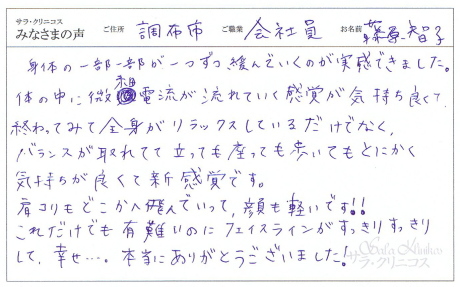 サラ・クリニコス
みなさまの声 ご住所 調布市 ご職業 会社員 お名前 藤原智子
身体の一部一部が一つずつ緩んでいくのが実感できました。
体の中に微細電流が流れていく感覚が気持ち良くて、
終わってみて全身がリラックスしているだけでなく、
バランスが取れてて立っても座っても歩いてもとにかく
気持ちが良くて新感覚です。
肩コリもどこかへ飛んでいって、顔も軽いです!!
これだけでも有難いのにフェイスラインがすっきりすっきり
して、幸せ…。本当にありがとうございました!
Sala Klinikos
サラ・クリニコス